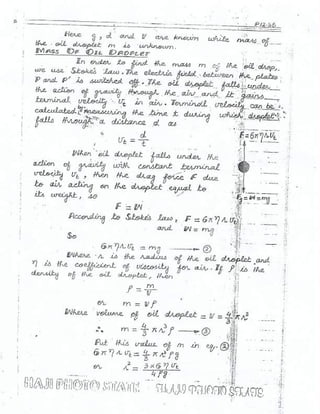 P-12-36
Here g, d and V are known while mass of
the oil droplet m is unknown.
MASS OF OIL DROPLET
In order to find the mass m of the oil drop,
we use Stoke's law. The electric field between the plates
P and P' is switched off. The oil droplet falls under
the action of gravity through the air and it gains
terminal velocity Ut in air. Terminal velocity can be
calculated measuring the time t during which droplet
falls through a distance d as
Ut = d/t
F=6πηrUt
When oil droplet falls under the
action of gravity with constant terminal
velocity Ut, then the drag force F due
to air acting on the droplet equal to
its weight, so
F = W
Fg=W=mg
According to Stoke's law, F = 6πηrUt
and W = mg
So
6πηrUt = mg ——②
Where r is the radius of the oil droplet and
η is the coefficient of viscosity for air. If ρ is the
density of the oil droplet, then
ρ = m/V
or m = Vρ
Where volume of oil droplet = V = 4/3 πr³
∴ m = 4/3 πr³ρ ——③
Put this value of m in eq. ②
6πηrUt = 4/3 πr³ρg
or r² = 3×6ηUt/4ρg
HAJI PHOTO STATE HAJI PHOTO STATE